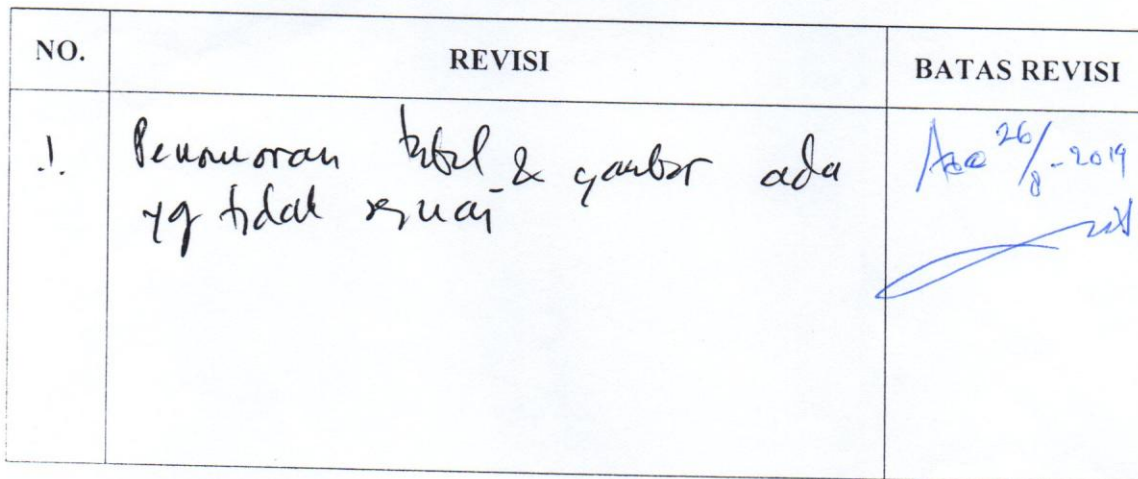 NO. REVISI BATAS REVISI
1. Penomoran tabel & gambar ada
yg tidak sesuai
Acc 26/8-2019